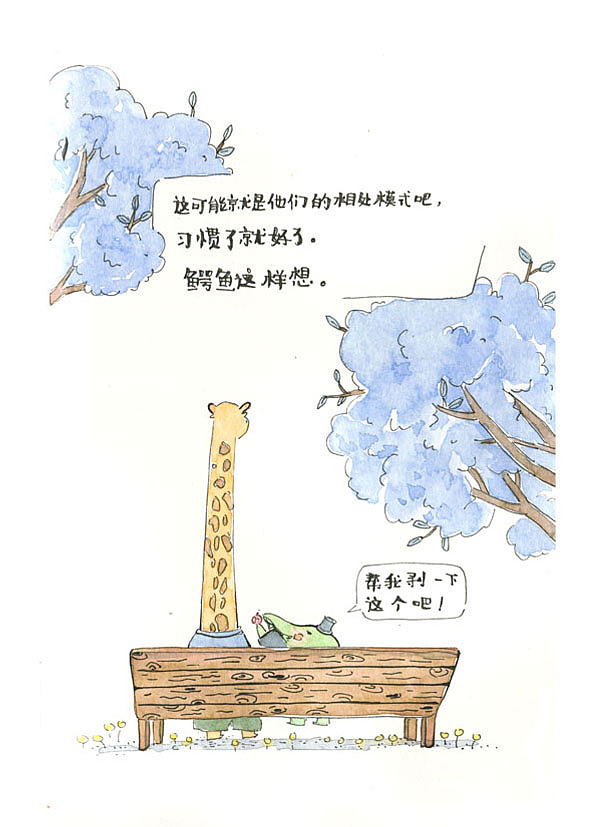 这可能就是他们的相处模式吧，
习惯了就好了。
鳄鱼这样想。
帮我剥一下
这个吧！